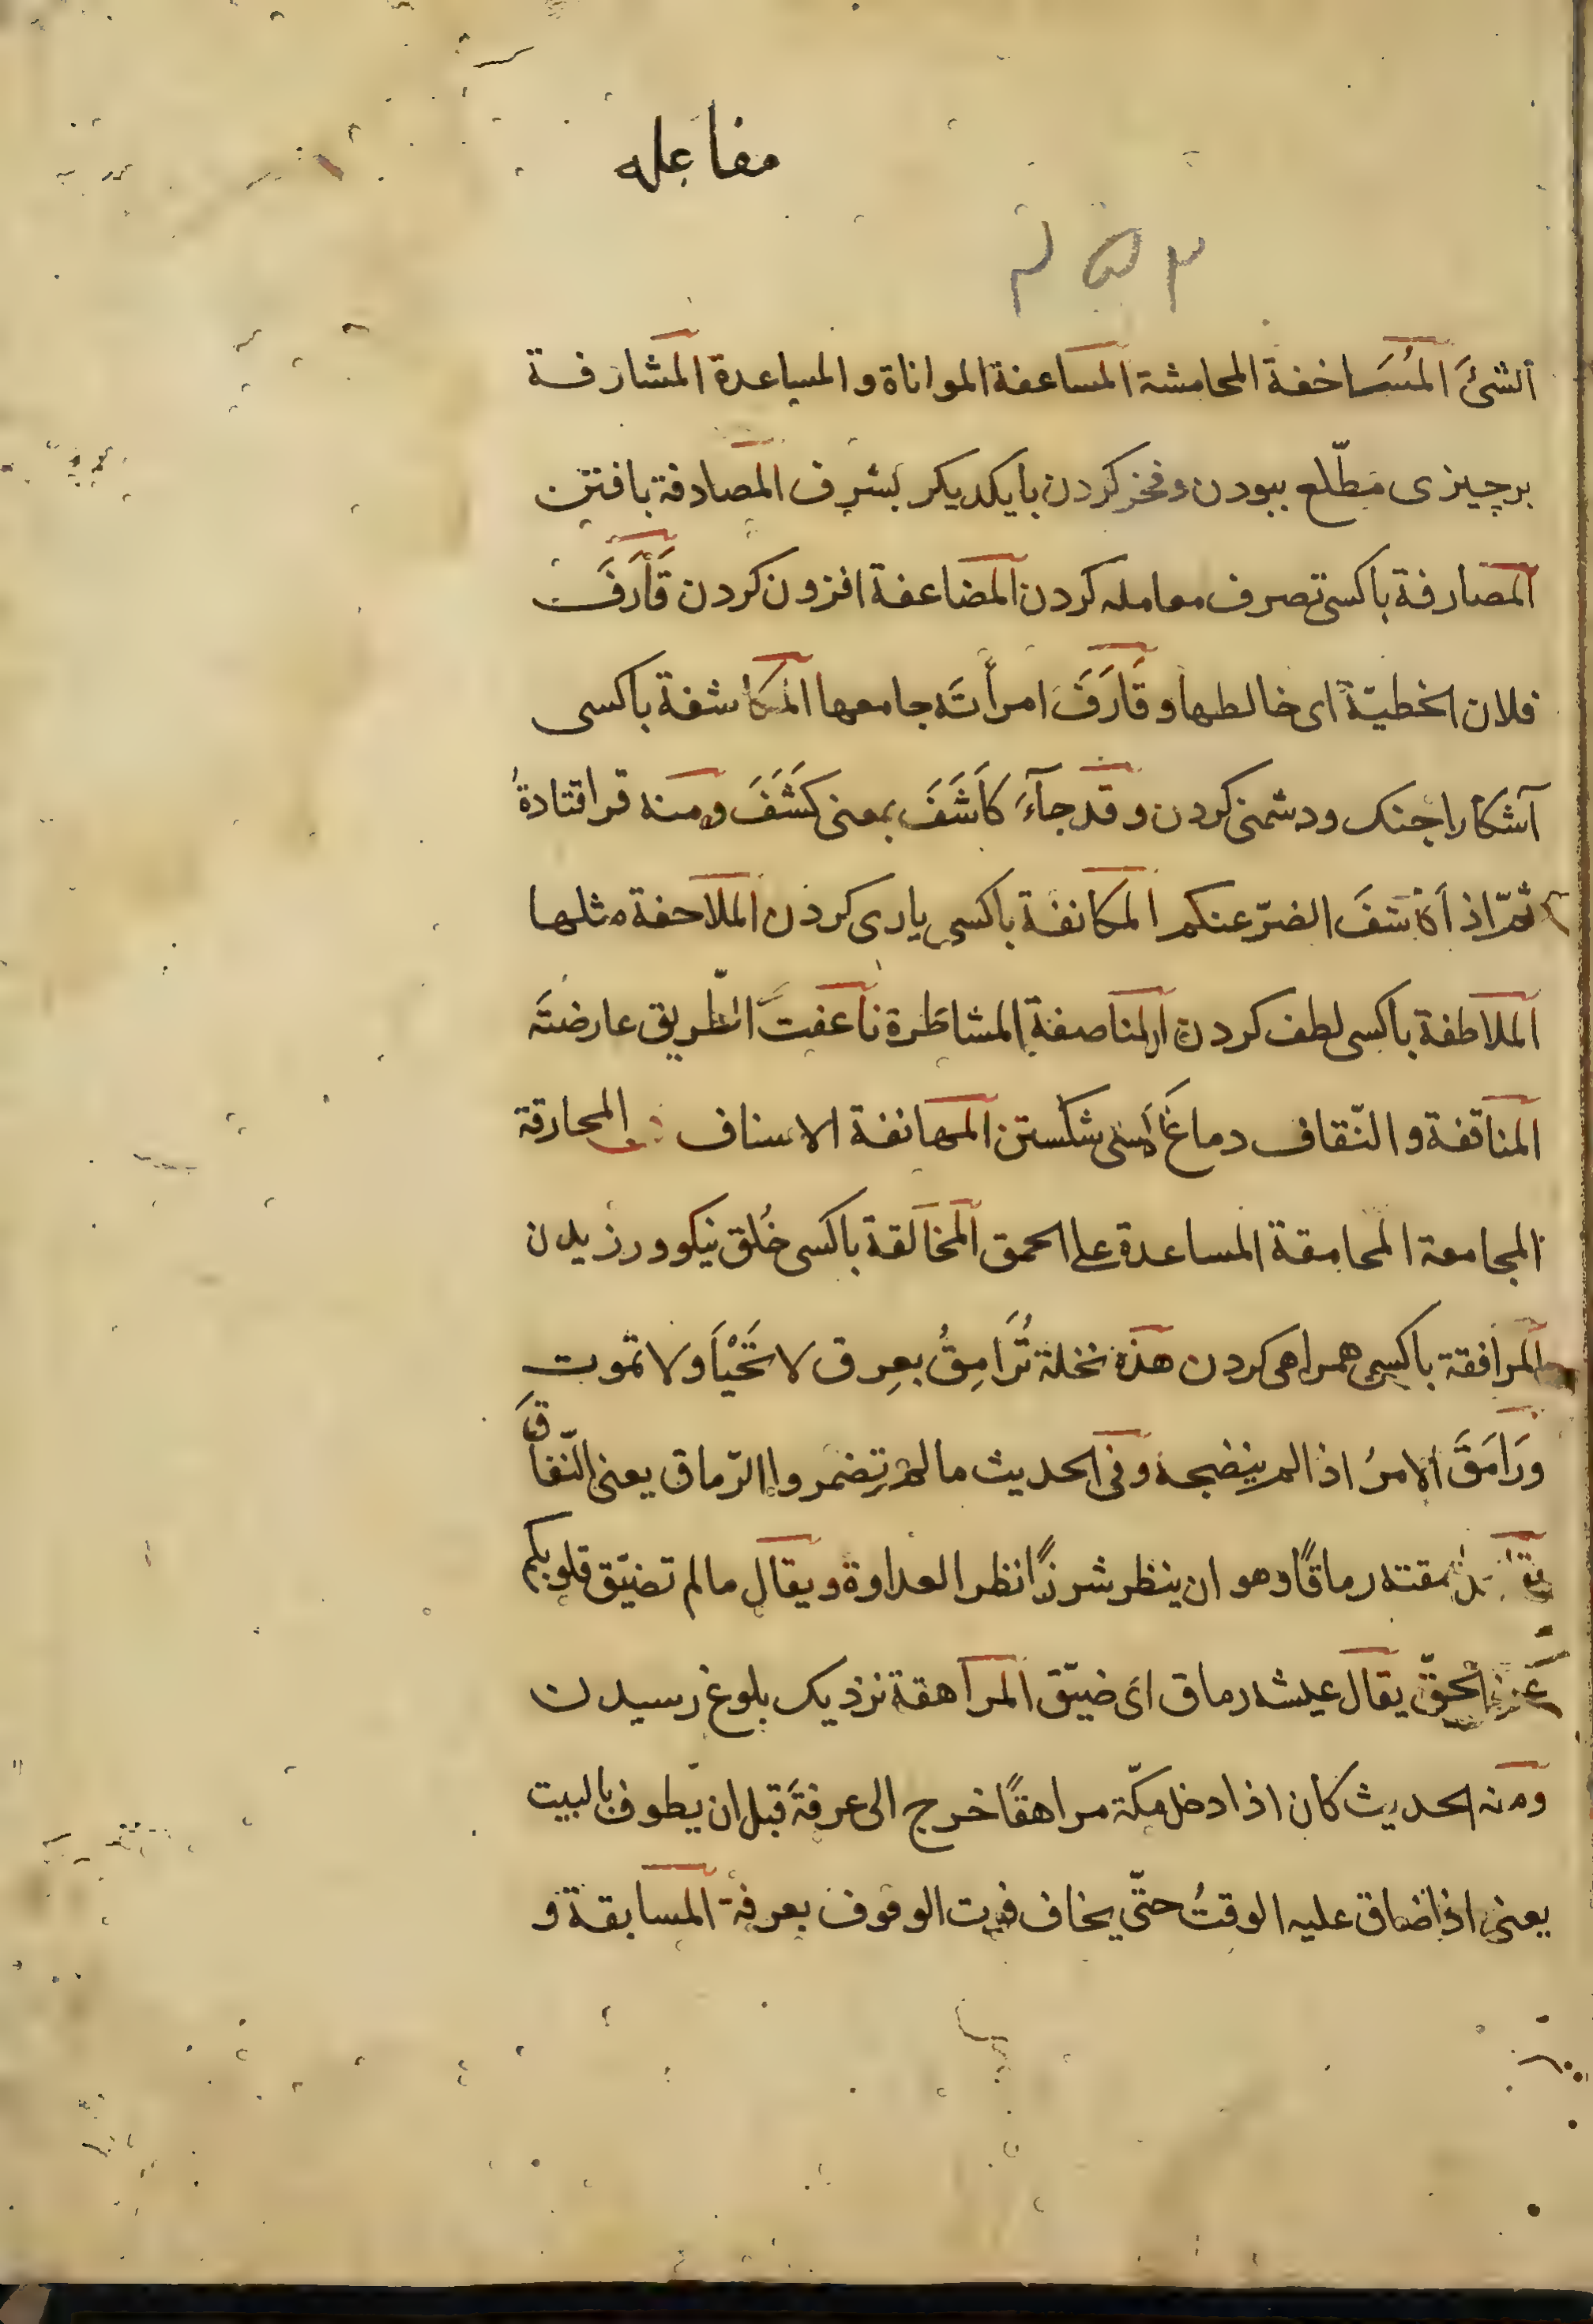 مفاعله
۳۵۳
الشئَ المُسَاخفة المحامشة المساعفة المواتاة و المساعدة المشارفة
برچیزی مطّلع ببودن و فخر کردن بایکدیکر بشرف المصادفة یافتن
المصارفة باکسی تصرف معامله کردن المضاعفة افزون کردن قَارَفَ
فلان الخطیّة ای خالطها و قَارَفَ امرأتَه جامعها المکاشفة باکسی
آشکارا جنک و دشمنی کردن و قد جآءَ کَاشَفَ بمعنی کَشَفَ و منه قرا قتادةُ
ثمّ اذا کاشَفَ الضرّ عنکم المکانفة باکسی یاری کردن الملاحفة مثلها
الملاطفة باکسی لطف کردن المناصفة المشاطرة ناعفت الطّریق عارضتَه
المناقفة و النّقاف دماغ کسی شکستن المهانفة الاسناف المحارقة
المجامعة المحامقة المساعدة علی الحمق المخالقة باکسی خُلق نیکو ورزیدن
المرافقة باکسی همراهی کردن هذه نخلة تُرَامِقُ بعِرق لا تَحْیَا و لا تموت
ورَامَقَ الامرُ اذا لم ینضجه و فی الحدیث مالم تضمروا الرّماق یعنی النّفاقَ
رماقًا وهو ان ینظر شرزًا نظر العداوة و یقال مالم تضیّق قلوبکم
عن الحقّ یقال عیشه رماق ای ضیّق المراهقة نزدیک بلوغ رسیدن
ومنه الحدیث کان اذا دخل مکّة مراهقًا خرج الی عرفةَ قبل ان یّطوف بالبیت
یعنی اذا ضاق علیه الوقتُ حتّی یخاف فوت الوقوف بعرفة المسابقة و